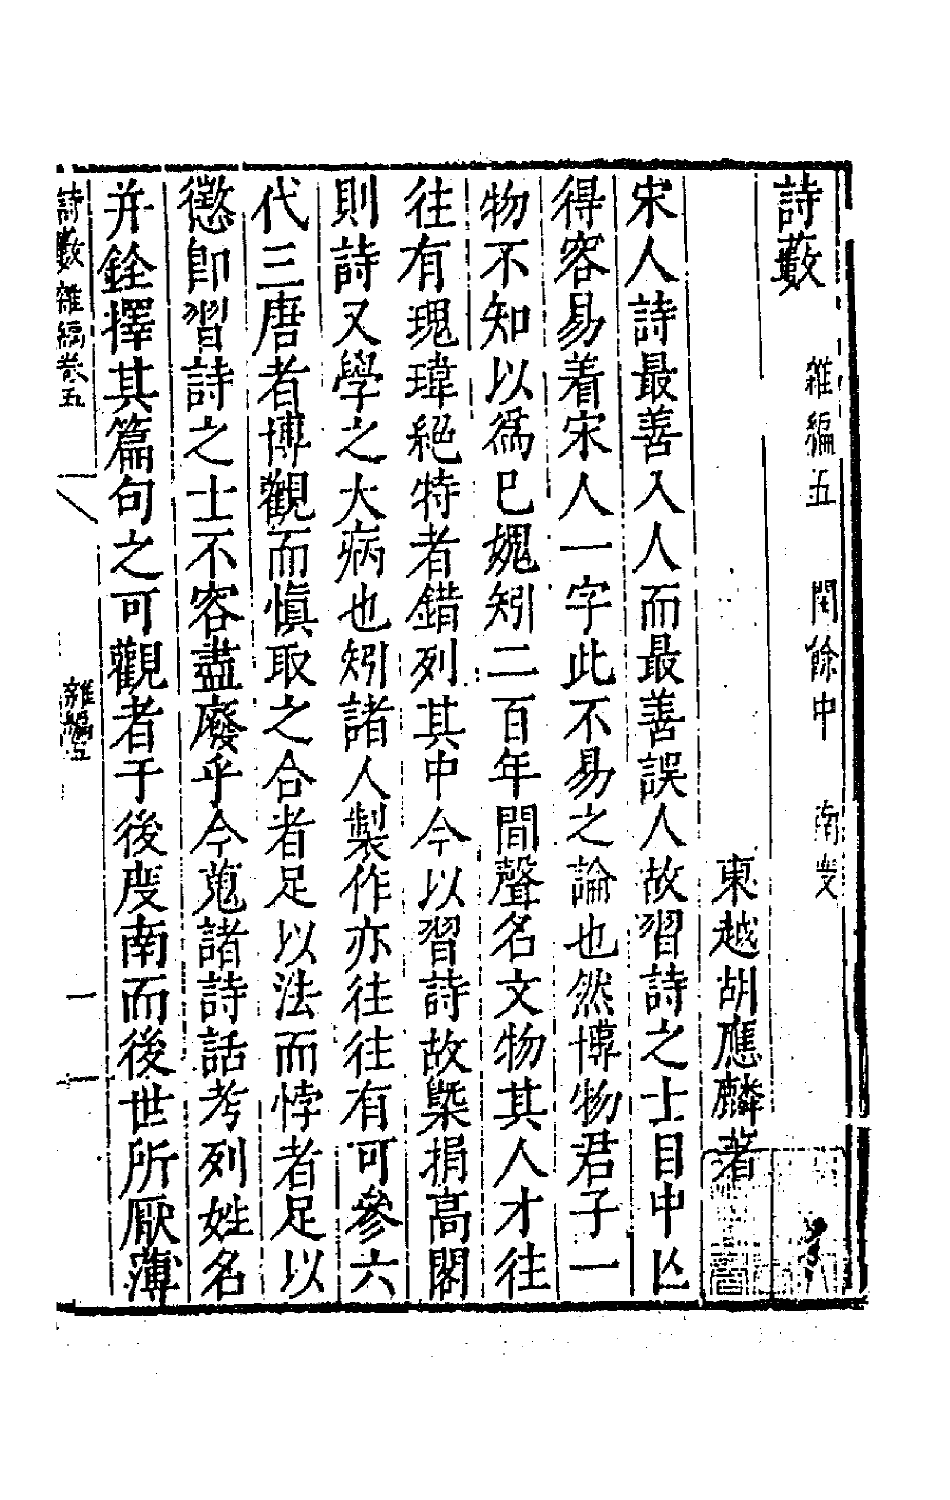 詩藪 雜編五 閏餘中 南度
東越胡應麟著
宋人詩最善入人而最善誤人故習詩之士目中必
得容易着宋人一字此不易之論也然博物君子一
物不知以為已媿矧二百年間聲名文物其人才往
往有瑰瑋絕特者錯列其中今以習詩故槩捐高閣
則詩又學之大病也矧諸人製作亦往往有可參六
代三唐者博觀而慎取之合者足以法而悖者足以
懲即習詩之士不容盡廢乎今蒐諸詩話考列姓名
并銓擇其篇句之可觀者于後度南而後世所厭薄
詩藪雜編卷五
雜編五
一